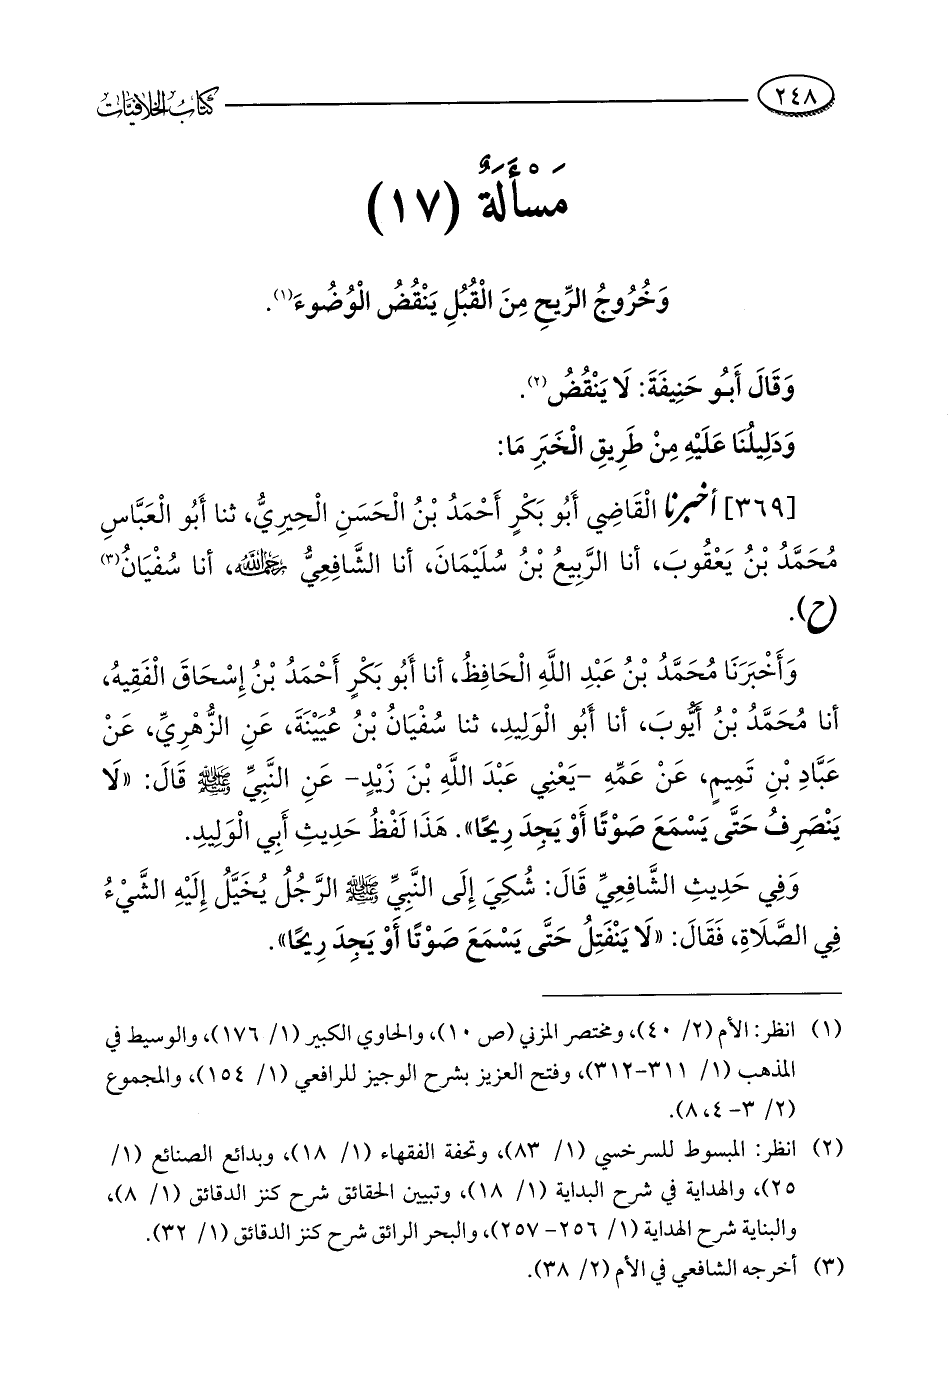 ٢٤٨ كتاب الخلافيات
مَسْأَلَةٌ (١٧)
وَخُرُوجُ الرِّيحِ مِنَ الْقُبُلِ يَنْقُضُ الْوُضُوءَ(١).
وَقَالَ أَبُو حَنِيفَةَ: لَا يَنْقُضُ(٢).
وَدَلِيلُنَا عَلَيْهِ مِنْ طَرِيقِ الْخَبَرِ مَا:
[٣٦٩] أخبرنا الْقَاضِي أَبُو بَكْرٍ أَحْمَدُ بْنُ الْحَسَنِ الْحِيرِيُّ، ثنا أَبُو الْعَبَّاسِ
مُحَمَّدُ بْنُ يَعْقُوبَ، أنا الرَّبِيعُ بْنُ سُلَيْمَانَ، أنا الشَّافِعِيُّ رَحِمَهُ اللَّهُ، أنا سُفْيَانُ(٣)
(ح).
وَأَخْبَرَنَا مُحَمَّدُ بْنُ عَبْدِ اللَّهِ الْحَافِظُ، أنا أَبُو بَكْرٍ أَحْمَدُ بْنُ إِسْحَاقَ الْفَقِيهُ،
أنا مُحَمَّدُ بْنُ أَيُّوبَ، أنا أَبُو الْوَلِيدِ، ثنا سُفْيَانُ بْنُ عُيَيْنَةَ، عَنِ الزُّهْرِيِّ، عَنْ
عَبَّادِ بْنِ تَمِيمٍ، عَنْ عَمِّهِ -يَعْنِي عَبْدَ اللَّهِ بْنَ زَيْدٍ- عَنِ النَّبِيِّ ﷺ قَالَ: «لَا
يَنْصَرِفُ حَتَّى يَسْمَعَ صَوْتًا أَوْ يَجِدَ رِيحًا». هَذَا لَفْظُ حَدِيثِ أَبِي الْوَلِيدِ.
وَفِي حَدِيثِ الشَّافِعِيِّ قَالَ: شُكِيَ إِلَى النَّبِيِّ ﷺ الرَّجُلُ يُخَيَّلُ إِلَيْهِ الشَّيْءُ
فِي الصَّلَاةِ، فَقَالَ: «لَا يَنْفَتِلُ حَتَّى يَسْمَعَ صَوْتًا أَوْ يَجِدَ رِيحًا».
(١) انظر: الأم (٢/ ٤٠)، ومختصر المزني (ص ١٠)، والحاوي الكبير (١/ ١٧٦)، والوسيط في
المذهب (١/ ٣١١-٣١٢)، وفتح العزيز بشرح الوجيز للرافعي (١/ ١٥٤)، والمجموع
(٢/ ٣- ٤، ٨).
(٢) انظر: المبسوط للسرخسي (١/ ٨٣)، وتحفة الفقهاء (١/ ١٨)، وبدائع الصنائع (١/
٢٥)، والهداية في شرح البداية (١/ ١٨)، وتبيين الحقائق شرح كنز الدقائق (١/ ٨)،
والبناية شرح الهداية (١/ ٢٥٦- ٢٥٧)، والبحر الرائق شرح كنز الدقائق (١/ ٣٢).
(٣) أخرجه الشافعي في الأم (٢/ ٣٨).